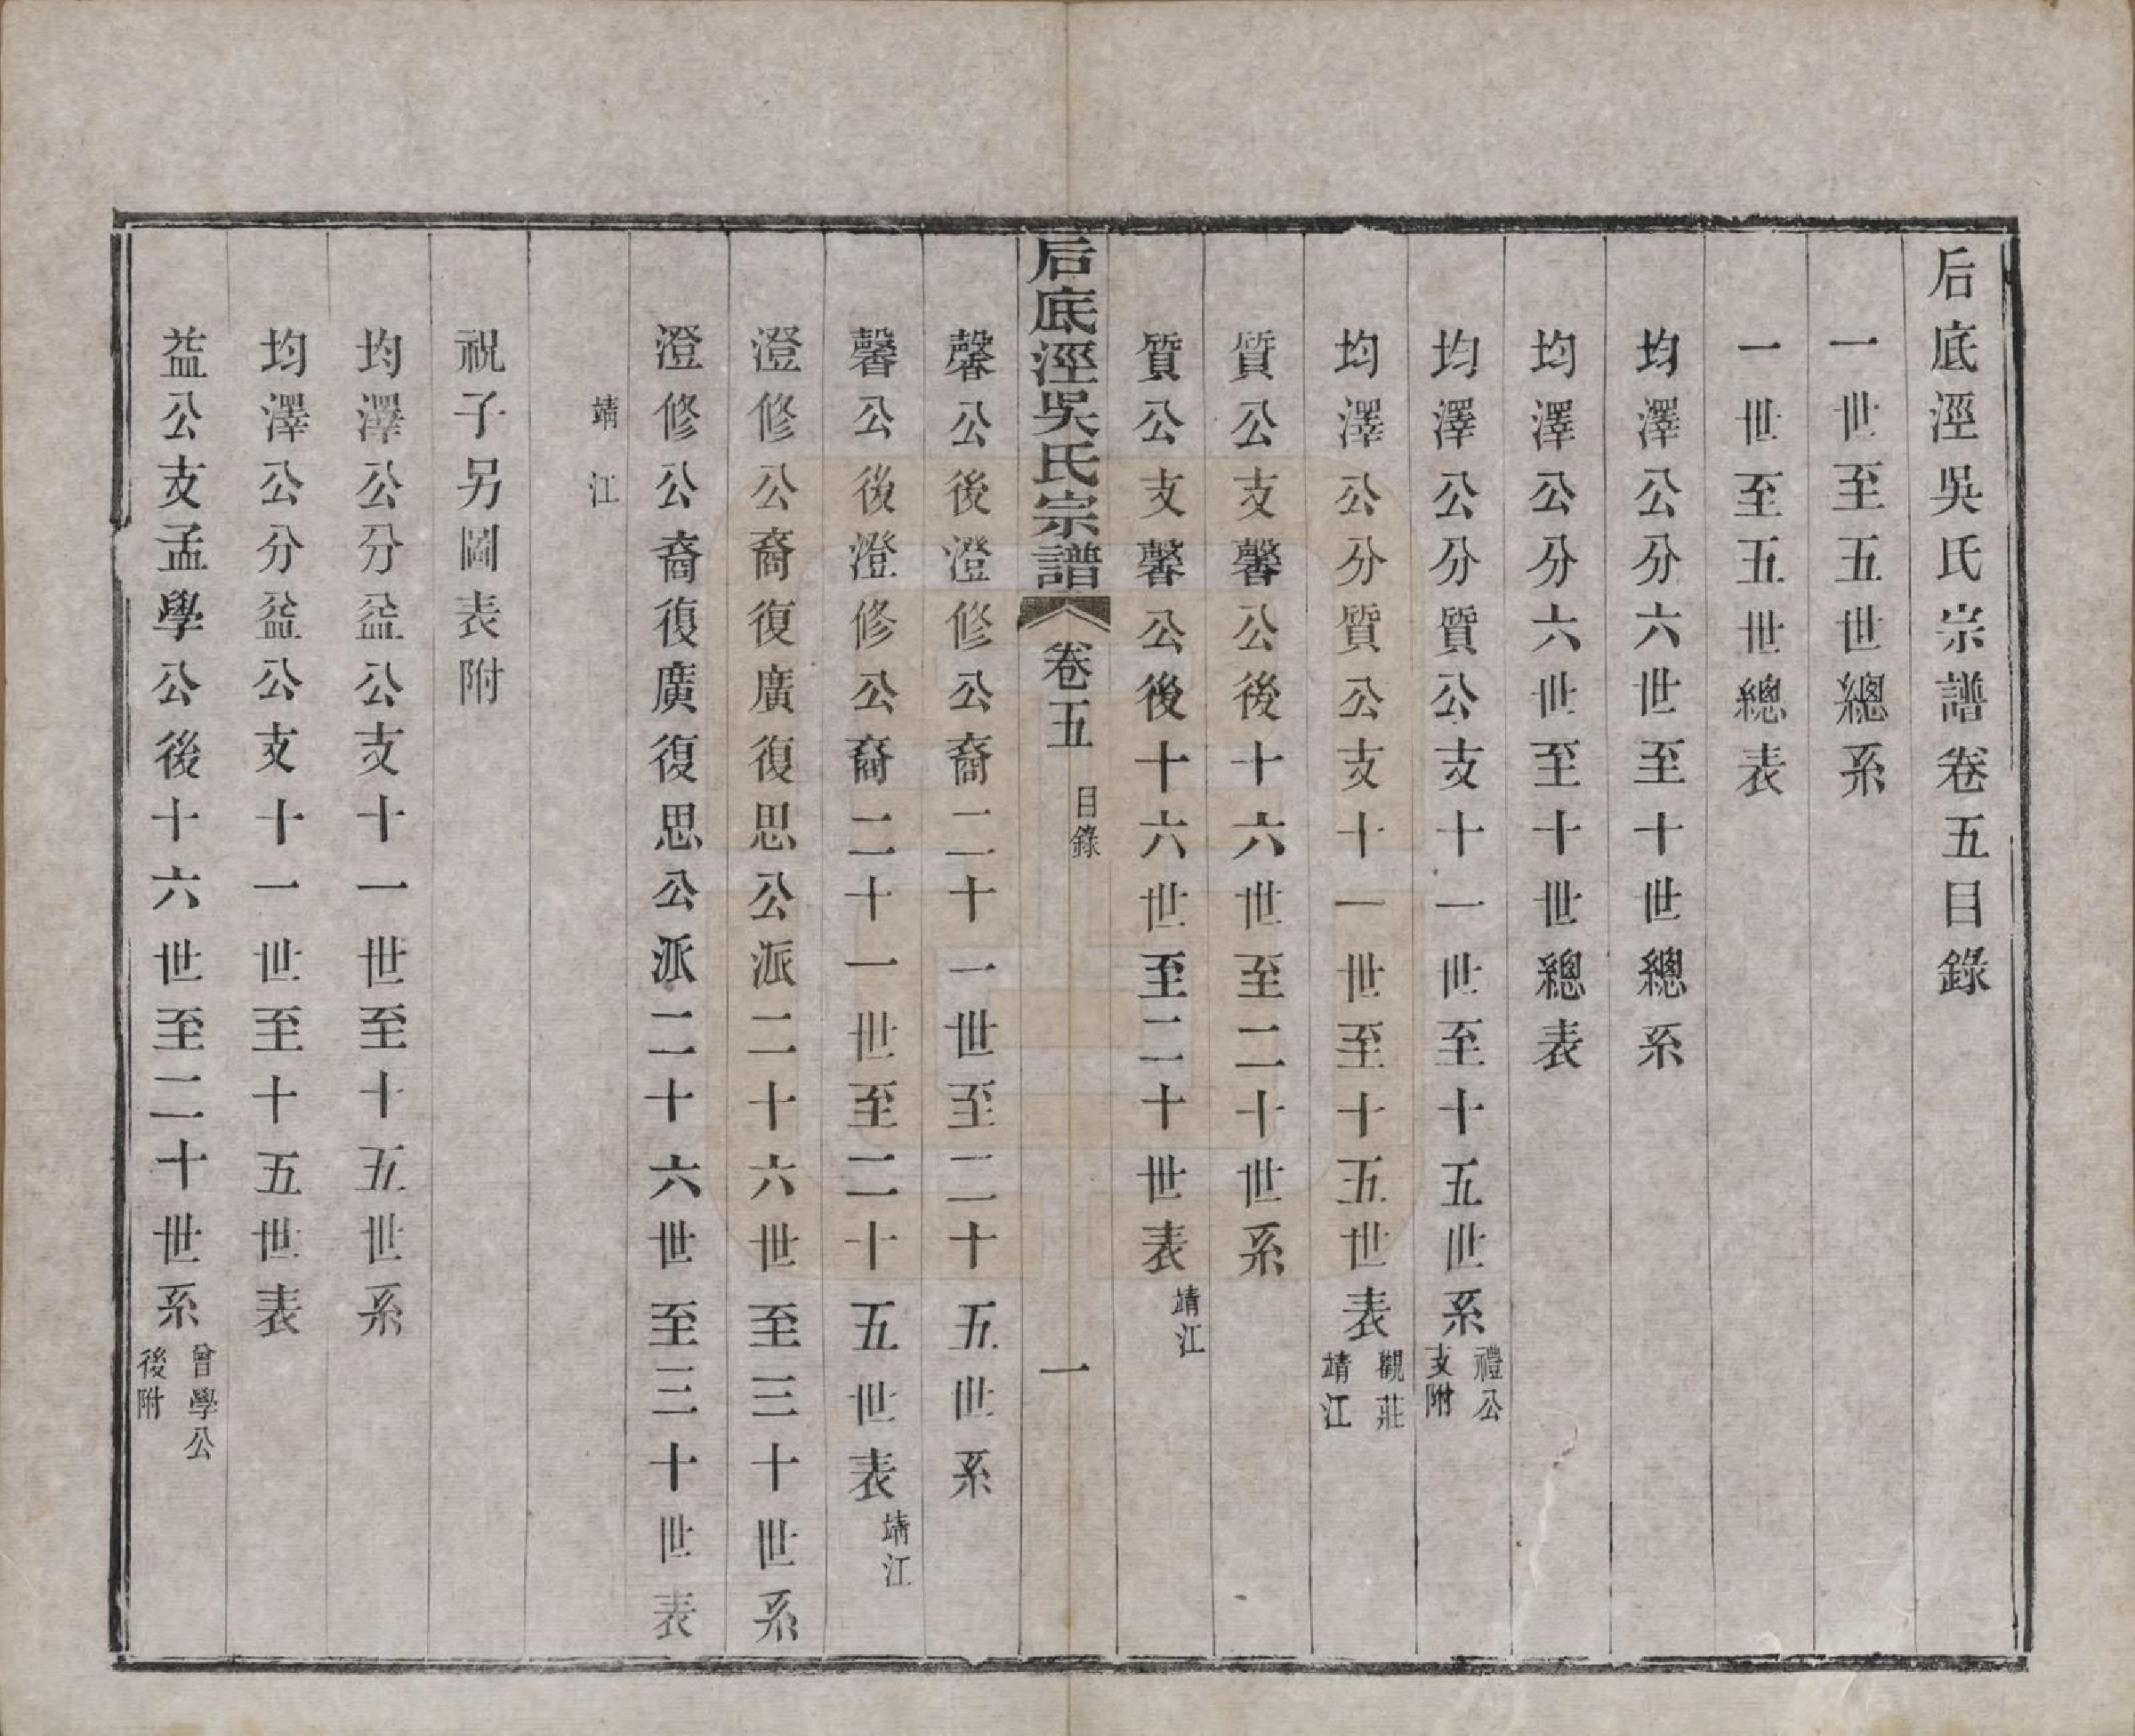 后底涇吳氏宗譜卷五目錄
一世至五世總系
一世至五世總表
均澤公分六世至十世總系
均澤公分六世至十世總表
均澤公分質公支十一世至十五世系禮公支附
均澤公分質公支十一世至十五世表觀莊靖江
質公支馨公後十六世至二十世系
質公支馨公後十六世至二十世表靖江
后底涇吳氏宗譜 卷五 目錄 一
馨公後澄修公裔二十一世至二十五世系
馨公後澄修公裔二十一世至二十五世表靖江
澄修公裔復廣復思公派二十六世至三十世系
澄修公裔復廣復思公派二十六世至三十世表
靖江
祝子另圖表附
均澤公分益公支十一世至十五世系
均澤公分益公支十一世至十五世表
益公支孟學公後十六世至二十世系曾學公後附